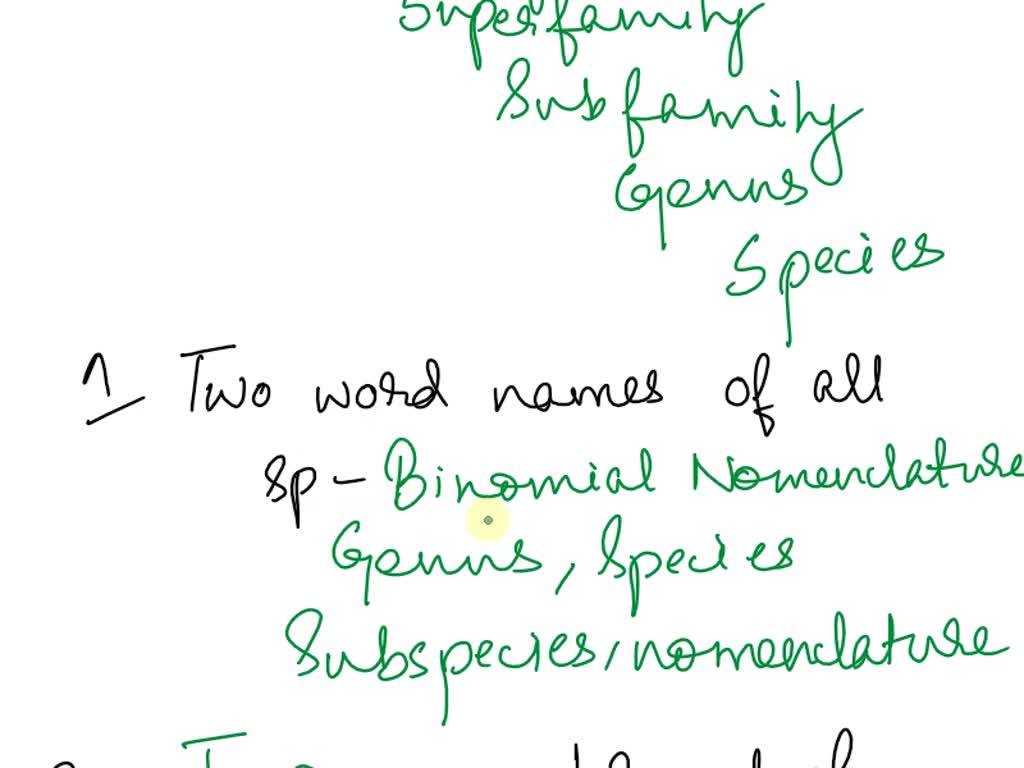 Superfamily
Subfamily
Genus
Species
1 Two word names of all
sp - Binomial Nomenclature
Genus, Species
Subspecies, nomenclature